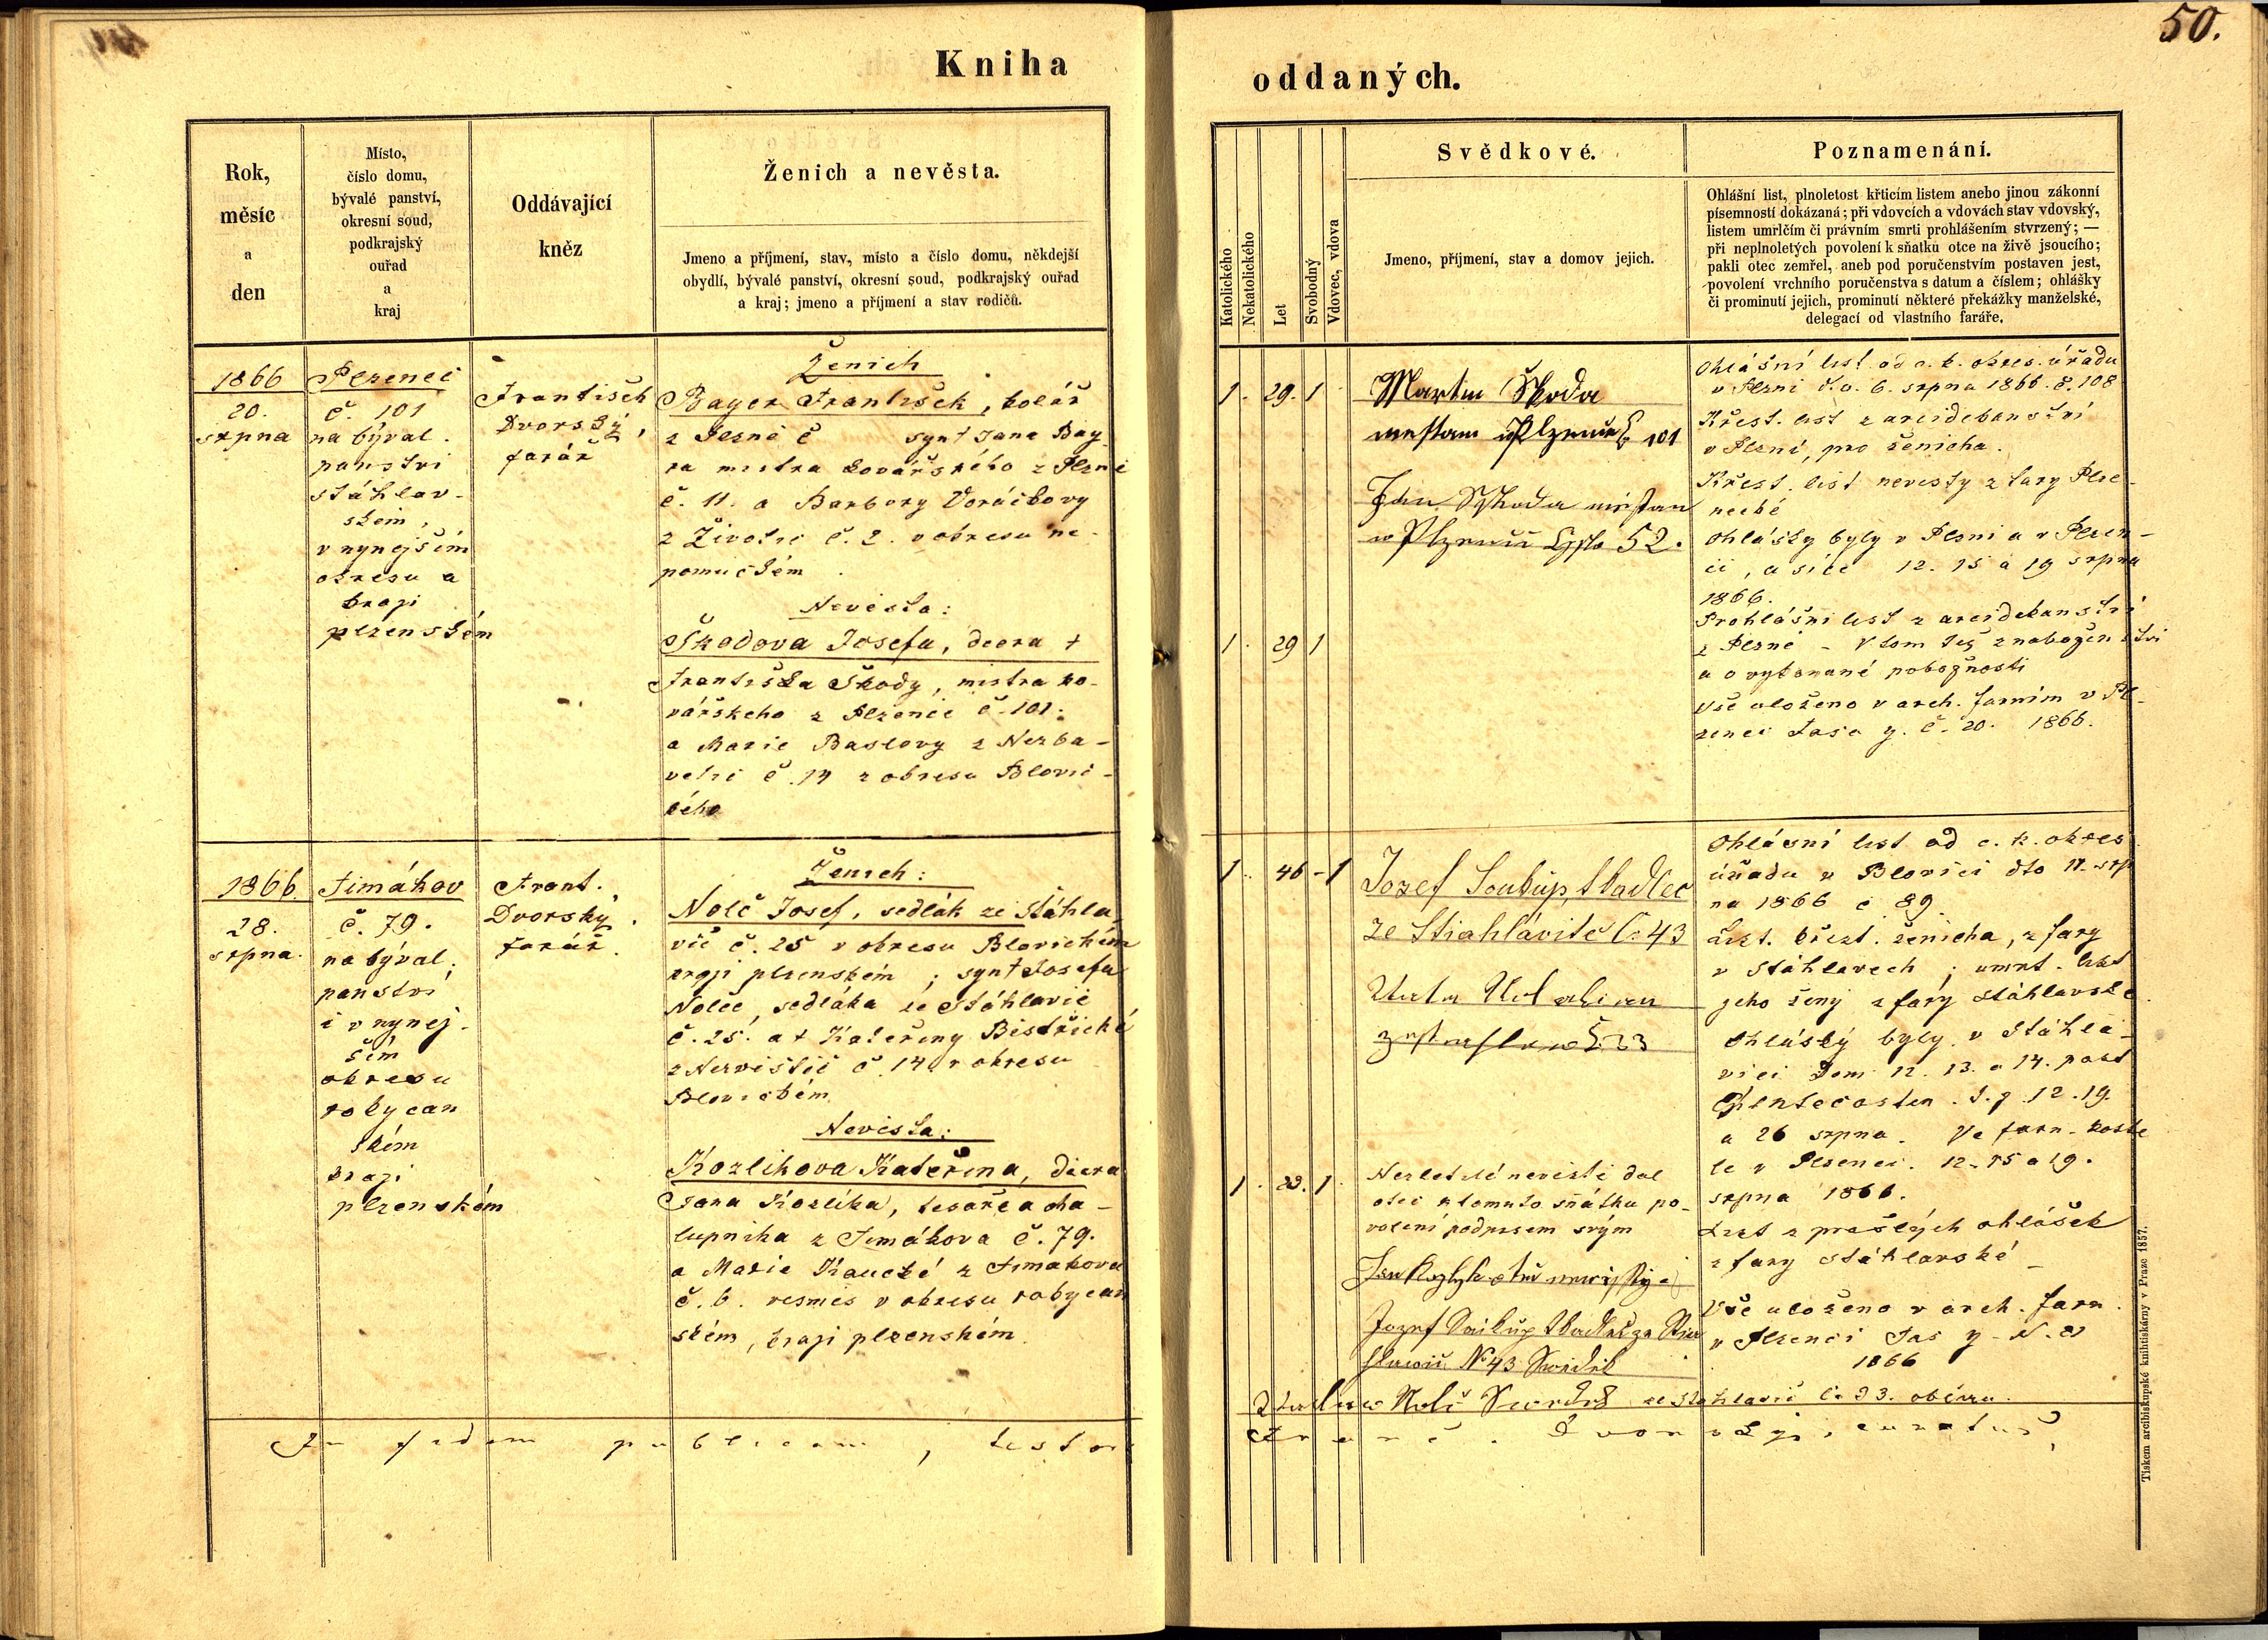 50.
Kniha
oddaných.
Rok,
měsíc
a
den
Místo,
číslo domu,
bývalé panství,
okresní soud,
podkrajský
ouřad
a
kraj
Oddávající
kněz
Ženich a nevěsta.
Jmeno a příjmení, stav, místo a číslo domu, někdejší
obydlí, bývalé panství, okresní soud, podkrajský ouřad
a kraj; jmeno a příjmení a stav rodičů.
Katolického
Nekatolického
Let
Svobodný
Vdovec, vdova
Svědkové.
Jmeno, příjmení, stav a domov jejich.
Poznamenání.
Ohlášní list, plnoletost křticím listem anebo jinou zákonní
písemností dokázaná; při vdovcích a vdovách stav vdovský,
listem umrlčím či právním smrti prohlášením stvrzený; —
při neplnoletých povolení k sňatku otce na živě jsoucího;
pakli otec zemřel, aneb pod poručenstvím postaven jest,
povolení vrchního poručenstva s datum a číslem; ohlášky
či prominutí jejich, prominutí některé překážky manželské,
delegací od vlastního faráře.
1866
20.
srpna
Plzenec
č. 101
na býval.
panstvi
stáhlav-
skem,
v nynejším
okresu a
kraji
plzenském
František
Dvorský,
farář
Ženich
Bayer František, kolář
z Plzně č synt Jana Bay
ra mistra kovářského z Plzně
č. 11. a Barbory Voráčkovy
z Životic č. 2. v okresu ne-
pomuckém.
Nevěsta:
Škodova Josefa, dcera +
Františka Škody, mistra ko-
vářskeho z Plzence č. 101.
a Marie Baslovy z Nezba-
vetic č. 14 z okresu Blovic-
kého
1. 29. 1
Martin Škoda
mestan w Plzenci č 101
Jan Škoda mistan
w Plzencii Čyslo 52.
1. 29 1
Ohlášní list od c. k. okres. úřadu
v Plzni d.o. 6. srpna 1866. č. 108
Křest. list z arcidekanství
v Plzni, pro ženicha.
Křest. list nevesty z fary Plze-
necké
Ohlášky byly v Plzni a v Plzen-
ci, a síce 12. 15 a 19 srpna
1866.
Prohlášni list z arcidekanství
z Plzně - V tom též z nabožen stvi
a o vykonané pobožnosti
Vše uloženo v arch. farním v Pl-
zenci Fasc. y. č. 20. 1866.
1866.
28.
srpna.
Timákov
č. 79.
na býval.
panství
i v nynej-
ším
okresu
rokycan
ském
kraji
plzenském
Frant.
Dvorský.
farář.
Ženich:
Nolč Josef, sedlák ze Stáhla-
vic č. 25 v okresu Blovickém
kraji plzenském; synt Josefa
Nolče, sedláka ze Stáhlavic
č. 25. a + Kateřiny Bistřické
z Nezvěstic č. 14. v okresu
Blovickém
Nevěsta:
Kozlikova Kateřina, dcera
Jana Kozlíka, tesaře a cha-
lupnika z Timákova č. 79.
a Marie Kaucké z Timakova
č. 6. vesmés v okresu rokycan
ském, kraji plzenském.
1. 46 - 1
Jozef Soukup, Skadlec
ze Stiahlávite č. 43
č. 33
1. 23. 1.
Nezletilé nevěstě dal
otec k tomuto sňátku po-
volení podpisem svým
Jozef Saikup Skadlec ze Stia
hlawic No 43 Swědek
Nolč Swedek ze Stáhlavic č. 33. obéma.
Ohlásní list od c. k. okres.
úřadu v Blovici dto 11. srp
na 1866 č 89.
List. křest. ženicha, z fary
v Stáhlavech; umrt. list
jeho ženy z fary Stáhlavské.
Ohlásky byly v Stáhla-
vici Dom 12. 13. a 14. post
Pentecosten. t. j. 12. 19.
a 26 srpna. Ve farn. koste
le v Plzenci. 12. 15 a 19.
srpna 1866.
List z prešlých ohlášek
z fary Stáhlavské -
Vše uloženo v arch. farn.
v Plzenci Fas y. N. 21
1866
In fidem publicam, testor
Franc. Dvorskýi, curatus
Tiskem arcibiskupské knihtiskárny v Praze 1857.